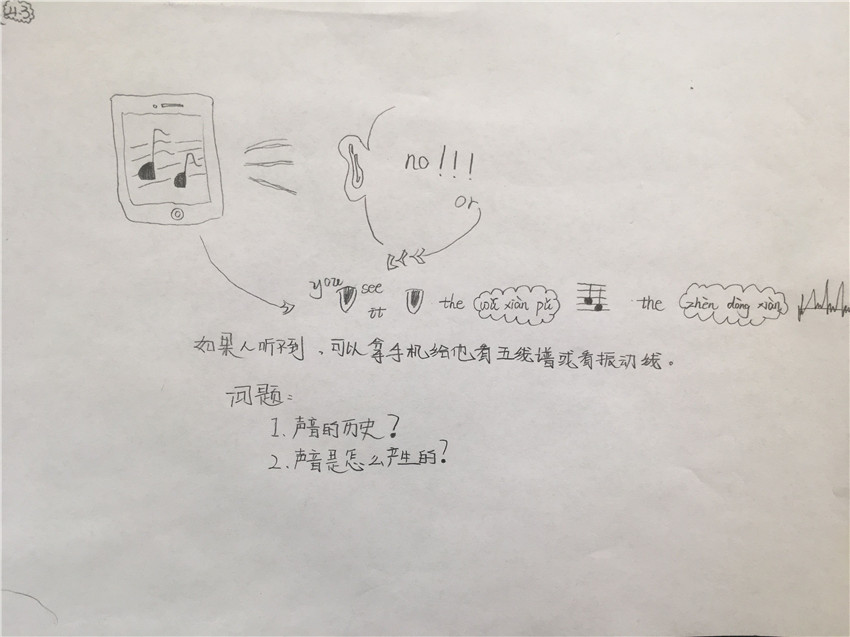 43
no!!!
or
you see
tt the wǔ xiàn pǔ the zhèn dòng xiàn
如果人听不到、可以拿手机给他看五线谱或看振动线。
问题:
1.声音的历史?
2.声音是怎么产生的?